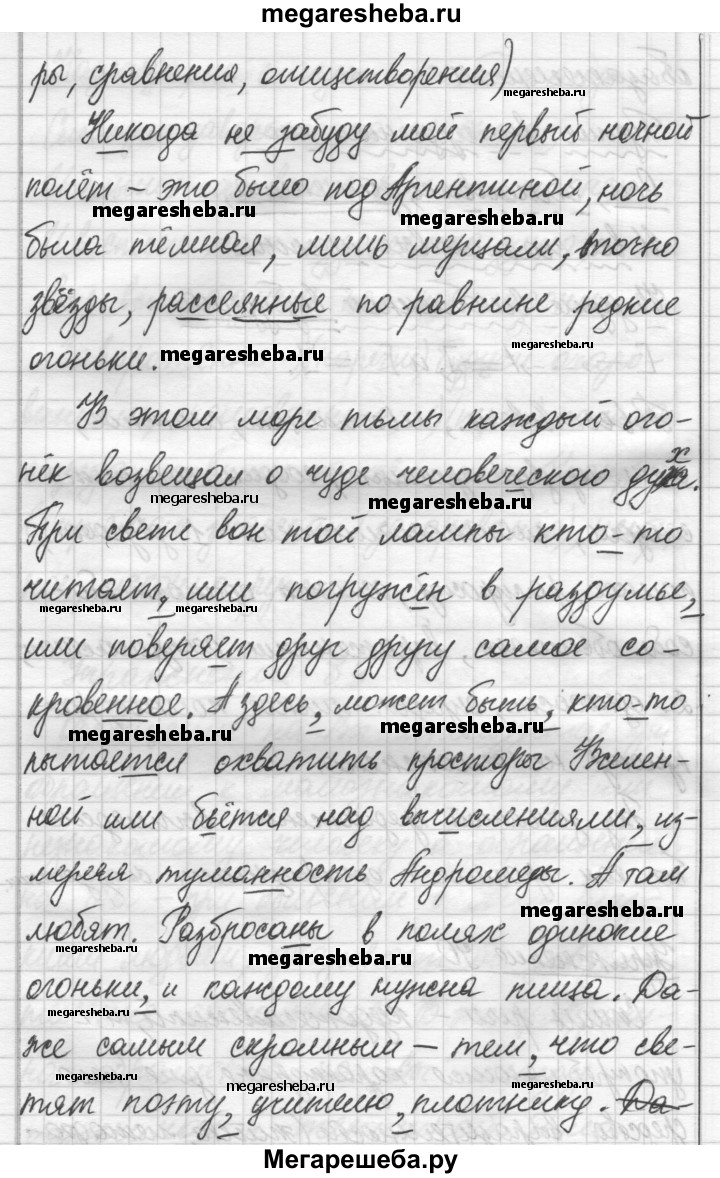 megaresheba.ru
ры, сравнения, олицетворения)
megaresheba.ru
Никогда не забуду мой первый ночной
полёт – это было под Аргентиной, ночь
megaresheba.ru megaresheba.ru
была тёмная, лишь мерцали, точно
звёзды, рассеянные по равнине редкие
огоньки. megaresheba.ru megaresheba.ru
В этом море тьмы каждый ого-
нёк возвещал о чуде человеческого духа.
megaresheba.ru megaresheba.ru
При свете вон той лампы кто-то
читает, или погружён в раздумье,
megaresheba.ru megaresheba.ru
или поверяет друг другу самое со-
кровенное. А здесь, может быть, кто-то
megaresheba.ru megaresheba.ru
пытается охватить просторы Вселен-
ной или бьётся над вычислениями, из-
меряя туманность Андромеды. А там
megaresheba.ru
любят. Разбросаны в полях одинокие
megaresheba.ru megaresheba.ru
огоньки, и каждому нужна пища. Да-
megaresheba.ru
же самым скромным – тем, что све-
megaresheba.ru megaresheba.ru megaresheba.ru
тят поэту, учителю, плотнику. Да-
megaresheba.ru
Мегарешеба.ру